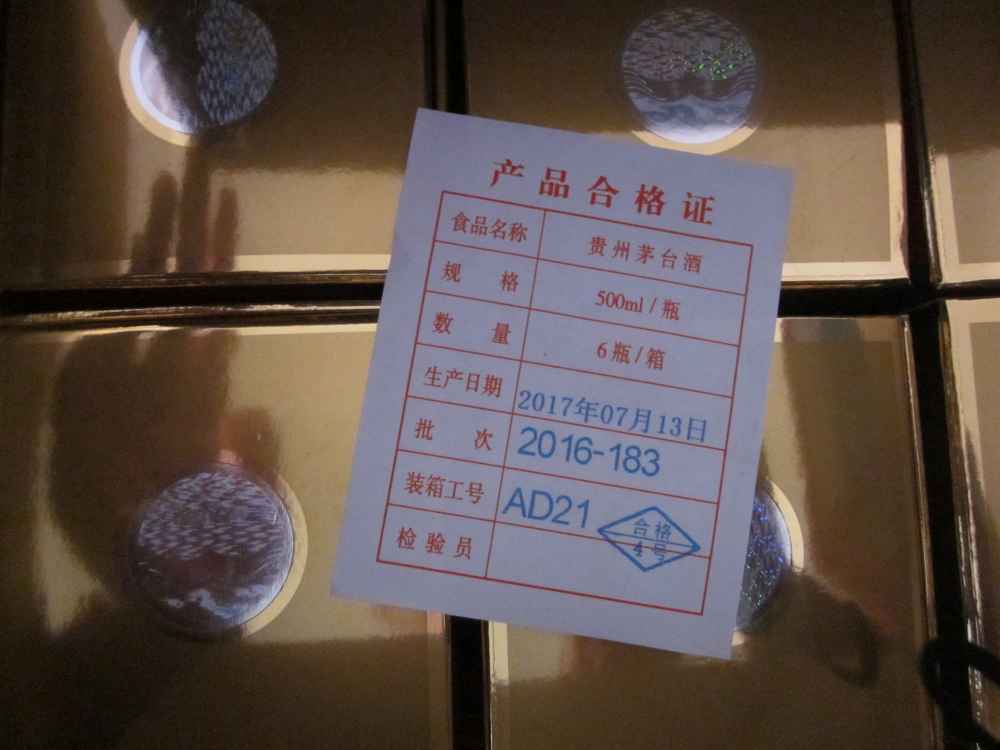 产品合格证
食品名称 贵州茅台酒
规 格 500ml/瓶
数 量 6瓶/箱
生产日期 2017年07月13日
批 次 2016-183
装箱工号 AD21
检验员 合格
4号